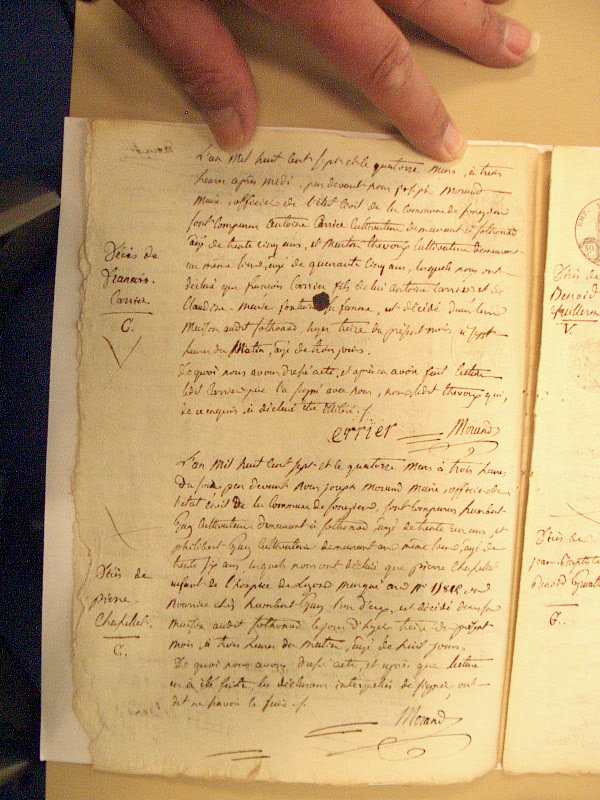 L'an mil huit cent sept et le quatorze mars, à trois
heures après midi par devant nous joseph Morand
Maire, officier de l'état civil de la Commune de songieu
sont comparus Antoine Carrier Cultivateur demeurant à sothonod
âgé de trente cinq ans, et Cultivateur demeurant
au même lieu, âgé de quarante cinq ans, lesquels nous ont
déclaré que françois Carrier fils de lui Antoine Carrier et de
Claudine Marie sa femme, est décédé dans leur
Maison audit sothonod hyer treize du présent mois, à sept
heures du Matin, âgé de trois jours.
De quoi nous avons dressé acte, et après en avoir fait lecture
ledit Carrier père l'a signé avec nous, non ledit qui,
de ce enquis a déclaré être illitéré ./.
Décès de
françois
Carrier
C.
errier Morand
L'an mil huit cent sept et le quatorze mars à trois heures
du soir par devant Nous joseph Morand Maire, officier de
l'état civil de la Commune de songieu, sont comparus humbert
Guy Cultivateur demeurant à sothonod âgé de trente un ans, et
philibert Guy Cultivateur demeurant au même lieu, âgé de
trente six ans, lesquels nous ont déclaré que pierre Chapellet
enfant de l'hospice de Lyon marqué au N°
Nourrice chez humbert Guy l'un d'eux, est décédé dans sa
maison audit sothonod le jour d'hyer treize du présent
mois, à trois heures du matin, âgé de huit jours.
De quoi nous avons dressé acte, et après que lecture
en a été faite, les déclarans interpellés de signer, ont
dit ne savoir le faire ./.
Décès de
pierre
Chapellet.
C.
Morand
Décès de
Benoit
V.
Décès de
jean
Benoit
G.